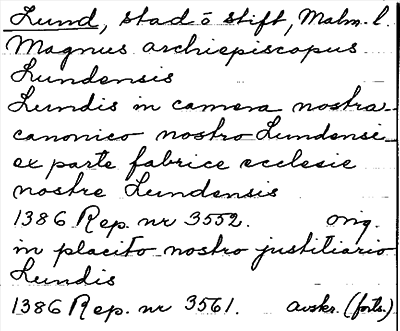 Lund, stad o stift, Malm. l.
Magnus archiepiscopus
Lundensis
Lundis in camera nostra
canonico nostro Lundensi
ex parte fabrice ecclesie
nostre Lundensis
1386 Rep. nr 3552. orig.
in placito nostro justitiario
Lundis
1386 Rep. nr 3561. avskr. (forts.)